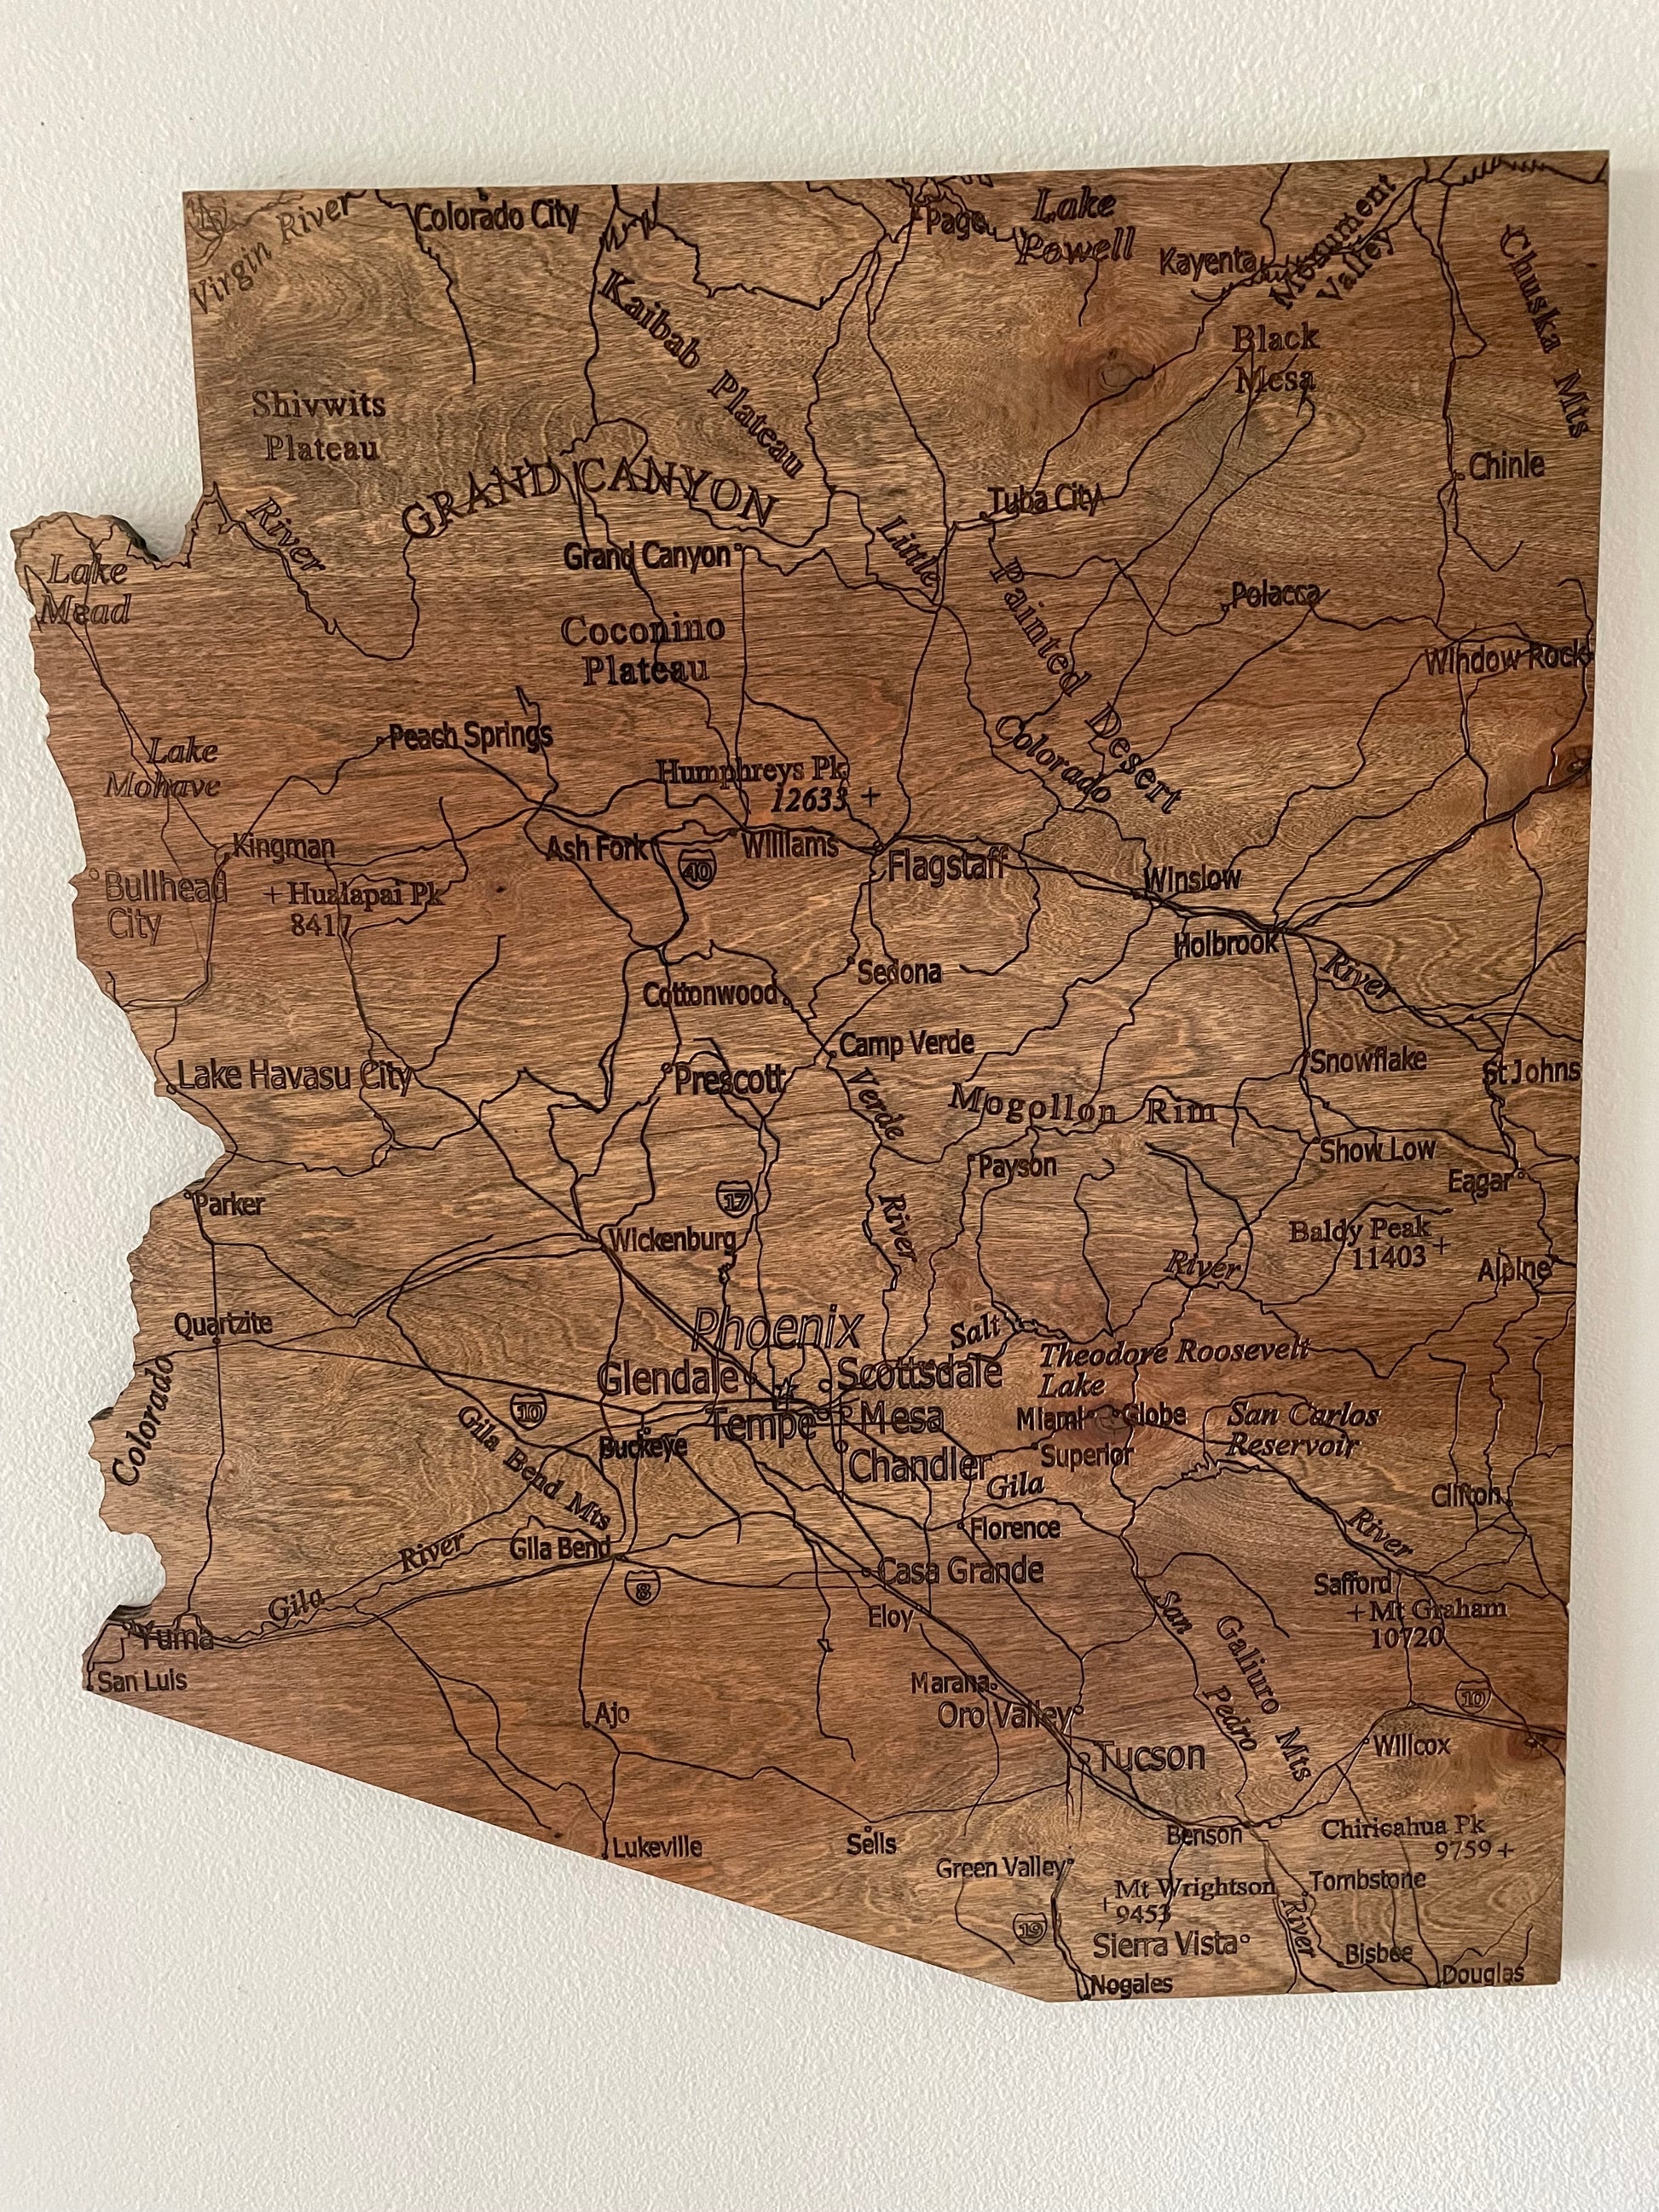 Virgin River
Colorado City
Page
Lake
Powell
Kayenta
Monument
Valley
Chuska Mts
Kaibab Plateau
Black
Mesa
Shivwits
Plateau
GRAND CANYON
Chinle
Tuba City
River
Lake
Mead
Grand Canyon
Little
Painted Desert
Polacca
Coconino
Plateau
Window Rock
Peach Springs
Lake
Mohave
Colorado
Humphreys Pk
12633 +
Kingman
Ash Fork
40
Williams
Flagstaff
Winslow
Bullhead
City
+ Hualapai Pk
8417
Holbrook
River
Sedona
Cottonwood
Camp Verde
Snowflake
St Johns
Lake Havasu City
Prescott
Verde
Mogollon Rim
Payson
Show Low
Eagar
Parker
17
River
Wickenburg
Baldy Peak
11403 +
River
Alpine
Quartzite
Phoenix
Salt
Theodore Roosevelt
Lake
Glendale
Scottsdale
Colorado
10
Gila Bend Mts
Tempe
Mesa
Miami
Globe
San Carlos
Reservoir
Buckeye
Chandler
Superior
Gila
Clifton
Florence
River
Gila River
Gila Bend
8
Casa Grande
Safford
Eloy
San
Pedro
Galiuro Mts
+ Mt Graham
10720
Yuma
San Luis
Marana
Oro Valley
10
Ajo
Tucson
Willcox
Lukeville
Sells
Benson
Chiricahua Pk
9759 +
Green Valley
+ Mt Wrightson
9453
Tombstone
19
Sierra Vista
River
Bisbee
Nogales
Douglas